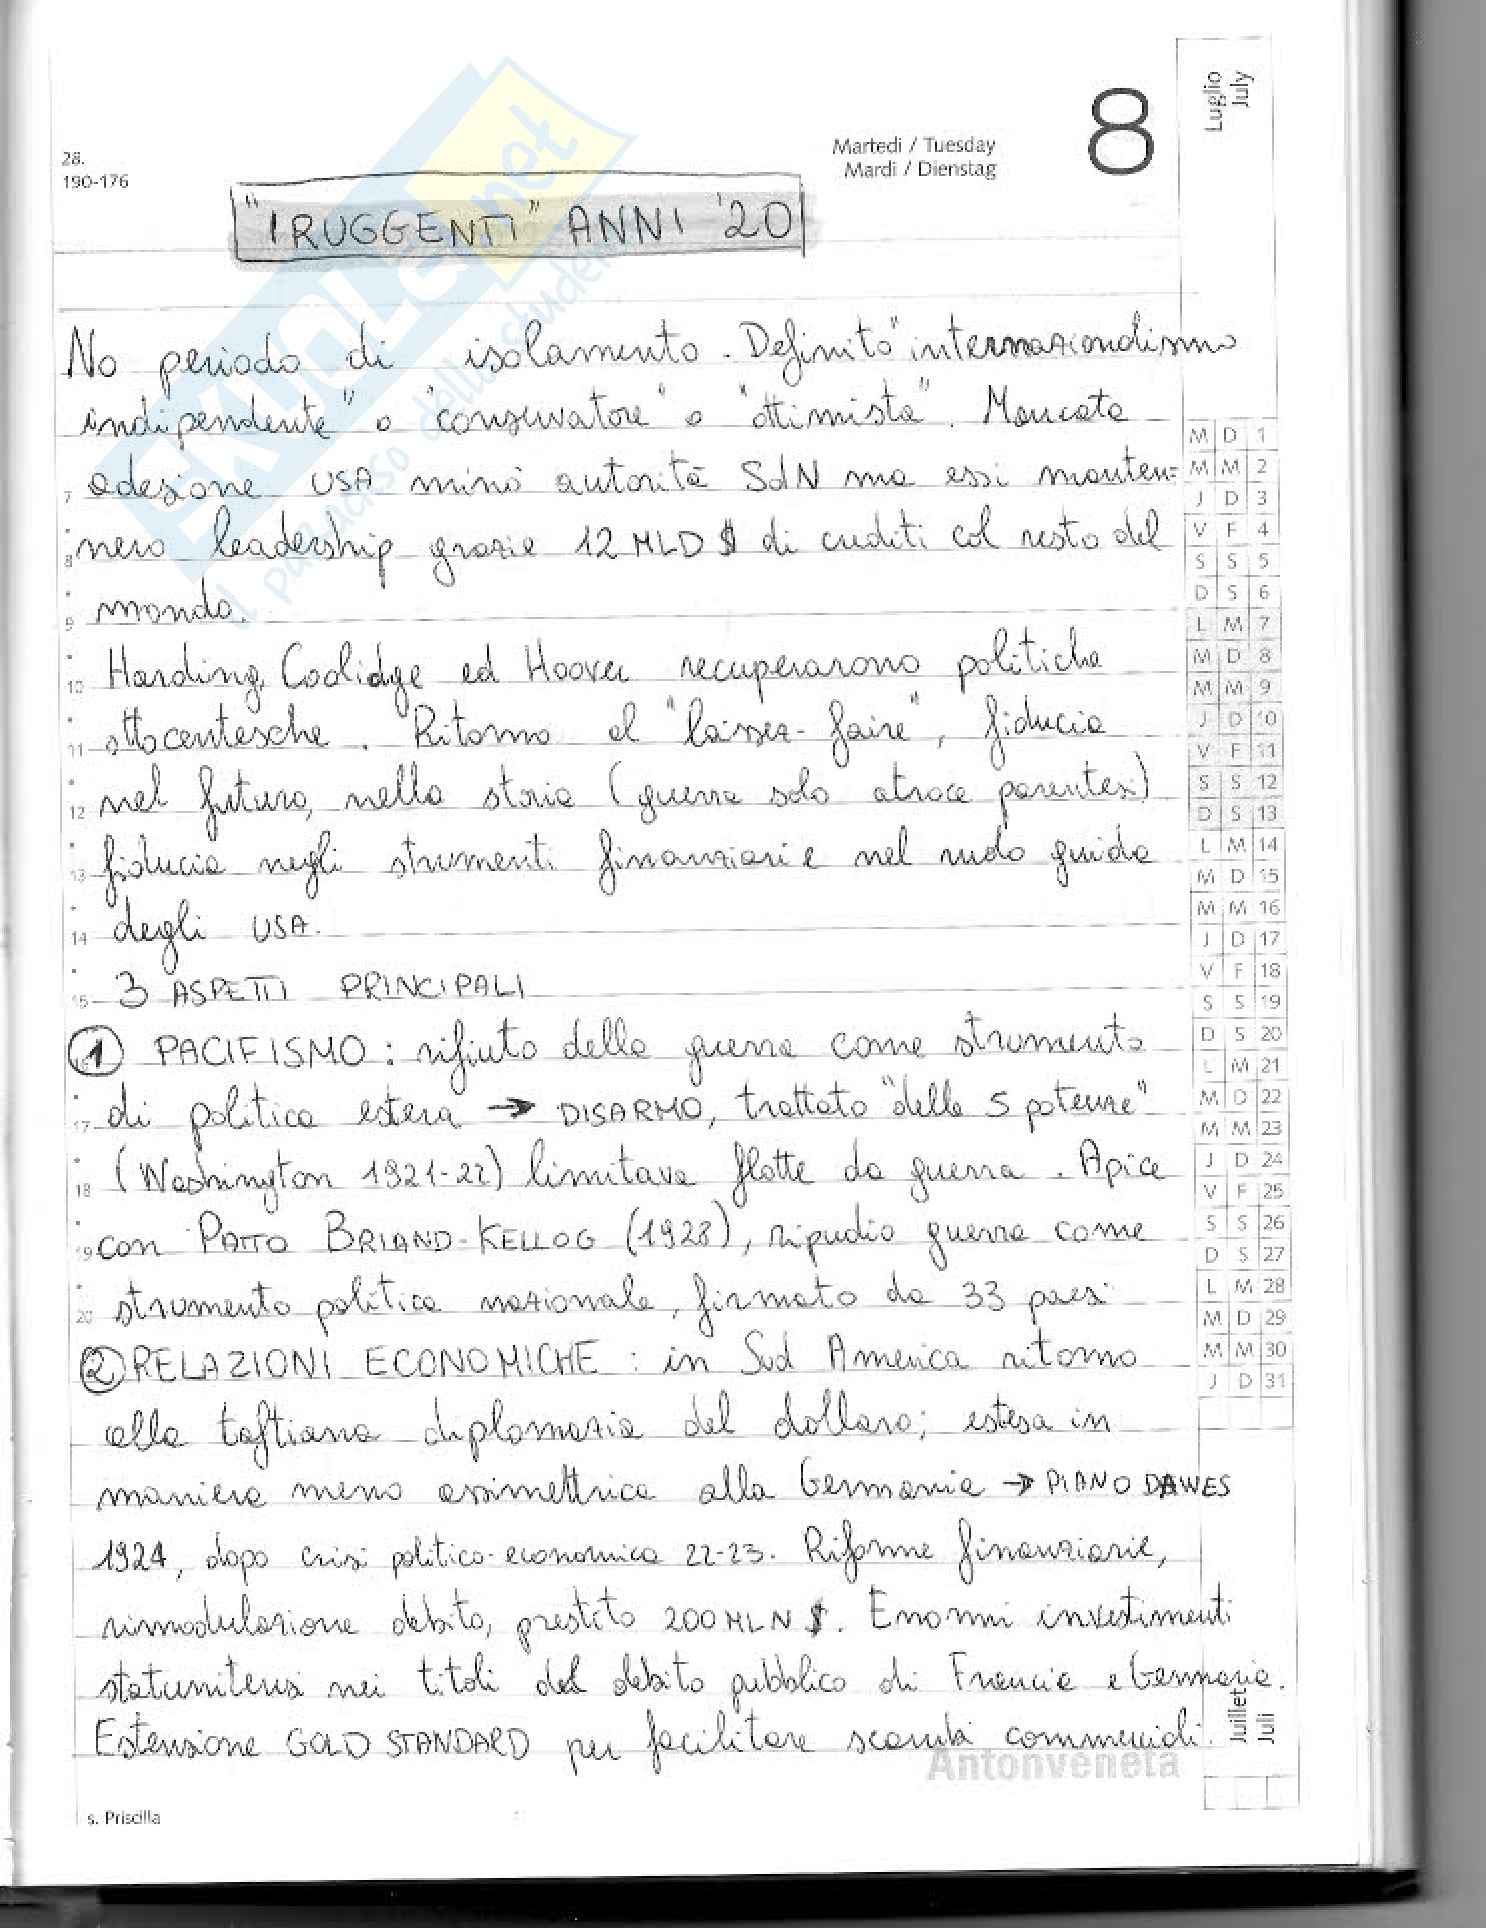 Luglio
July
8
Martedi / Tuesday
Mardi / Dienstag
28.
190-176
"I RUGGENTI" ANNI '20
SKUOLA.net
il paradiso dello studente
No periodo di isolamento. Definito "internazionalismo
indipendente" o "conservatore" o "ottimista". Mancata
adesione USA minò autorità SdN ma essi manten=
nero leadership grazie 12 MLD $ di crediti col resto del
mondo.
Harding, Coolidge ed Hoover recuperarono politiche
ottocentesche. Ritorno al "laissez-faire", fiducia
nel futuro, nella storia (guerra solo atroce parentesi)
fiducia negli strumenti finanziari e nel ruolo guida
degli USA.
3 ASPETTI PRINCIPALI
1 PACIFISMO: rifiuto della guerra come strumento
di politica estera → DISARMO, trattato "delle 5 potenze"
(Washington 1921-22) limitava flotte da guerra. Apice
con PATTO BRIAND-KELLOG (1928), ripudio guerra come
strumento politica nazionale, firmato da 33 paesi
2 RELAZIONI ECONOMICHE: in Sud America ritorno
alla taftiana diplomazia del dollaro; estesa in
maniera meno assimettrica alla Germania → PIANO DAWES
1924, dopo crisi politico-economica 22-23. Riforme finanziarie,
rimodulazione debito, prestito 200 MLN $. Enormi investimenti
statunitensi nei titoli del debito pubblico di Francia e Germania.
Estensione GOLD STANDARD per facilitare scambi commerciali.
7
8
9
10
11
12
13
14
15
17
18
19
20
M D 1
M M 2
J D 3
V F 4
S S 5
D S 6
L M 7
M D 8
M M 9
J D 10
V F 11
S S 12
D S 13
L M 14
M D 15
M M 16
J D 17
V F 18
S S 19
D S 20
L M 21
M D 22
M M 23
J D 24
V F 25
S S 26
D S 27
L M 28
M D 29
M M 30
J D 31
Juillet
Juli
Antonveneta
s. Priscilla